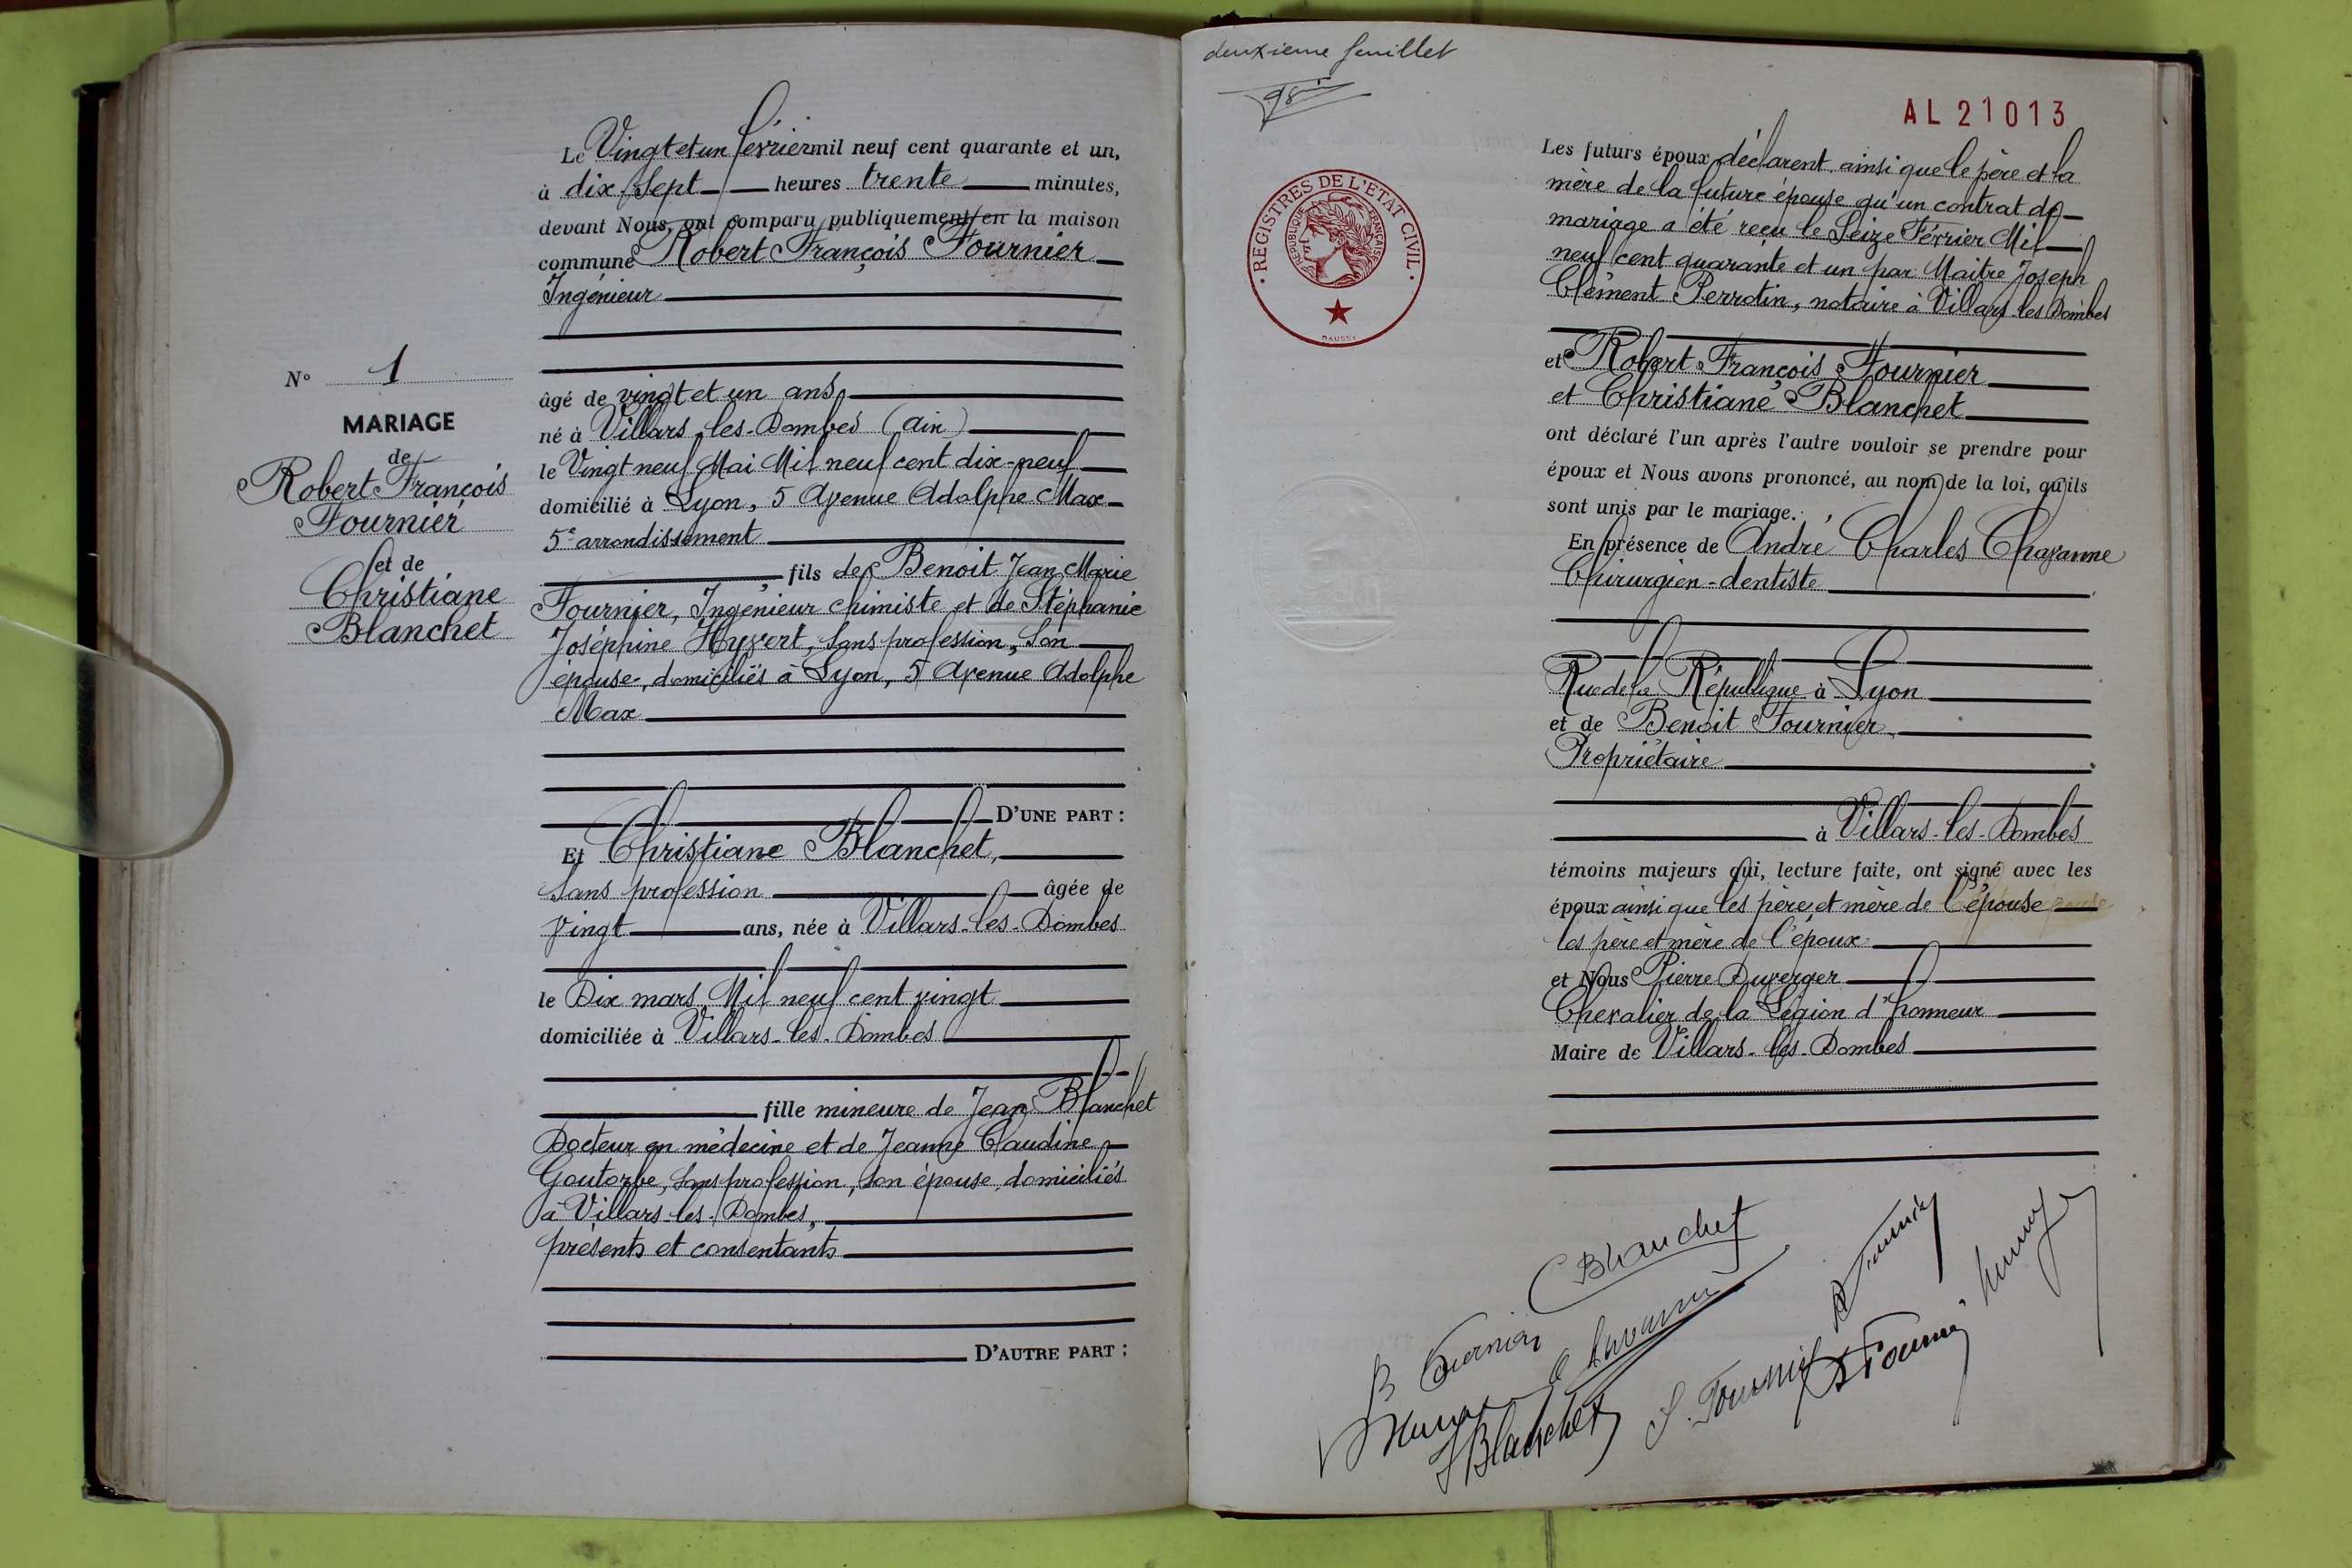 Le Vingt et un février mil neuf cent quarante et un,
à dix-sept heures trente minutes,
devant Nous, ont comparu publiquement en la maison
commune Robert François Fournier
Ingénieur
N° 1
MARIAGE
de
Robert François
Fournier
et de
Christiane
Blanchet
âgé de vingt et un ans,
né à Villars-les-Dombes (Ain)
le Vingt neuf Mai Mil neuf cent dix-neuf
domicilié à Lyon, 5 Avenue Adolphe Max
5e arrondissement
fils de Benoit Jean Marie
Fournier, Ingénieur chimiste et de Stéphanie
Joséphine Hyvert, sans profession, son
épouse, domiciliés à Lyon, 5 Avenue Adolphe
Max
D'UNE PART :
Et Christiane Blanchet,
sans profession âgée de
vingt ans, née à Villars-les-Dombes
le Dix mars Mil neuf cent vingt
domiciliée à Villars-les-Dombes
fille mineure de Jean Blanchet
Docteur en médecine et de Jeanne Claudine
Goutorbe, sans profession, son épouse, domiciliés
à Villars-les-Dombes,
présents et consentants
D'AUTRE PART :
deuxieme feuillet
AL 21013
REGISTRES DE L'ETAT CIVIL
REPUBLIQUE FRANÇAISE
DAUSSY
Les futurs époux déclarent ainsi que le père et la
mère de la future épouse qu'un contrat de
mariage a été reçu le Seize Février Mil
neuf cent quarante et un par Maitre Joseph
Clément Perrotin, notaire à Villars les Dombes
et Robert François Fournier
et Christiane Blanchet
ont déclaré l'un après l'autre vouloir se prendre pour
époux et Nous avons prononcé, au nom de la loi, qu'ils
sont unis par le mariage.
En présence de André Charles Chavanne
Chirurgien-dentiste
Rue de la République à Lyon
et de Benoit Fournier
Propriétaire
à Villars-les-Dombes
témoins majeurs qui, lecture faite, ont signé avec les
époux ainsi que les père et mère de l'épouse
les père et mère de l'époux
et Nous Pierre Duverger
Chevalier de la Légion d'honneur
Maire de Villars-les-Dombes
C Blanchet
R Fournier
B Fournier
J Blanchet
S. Fournier
Fournier